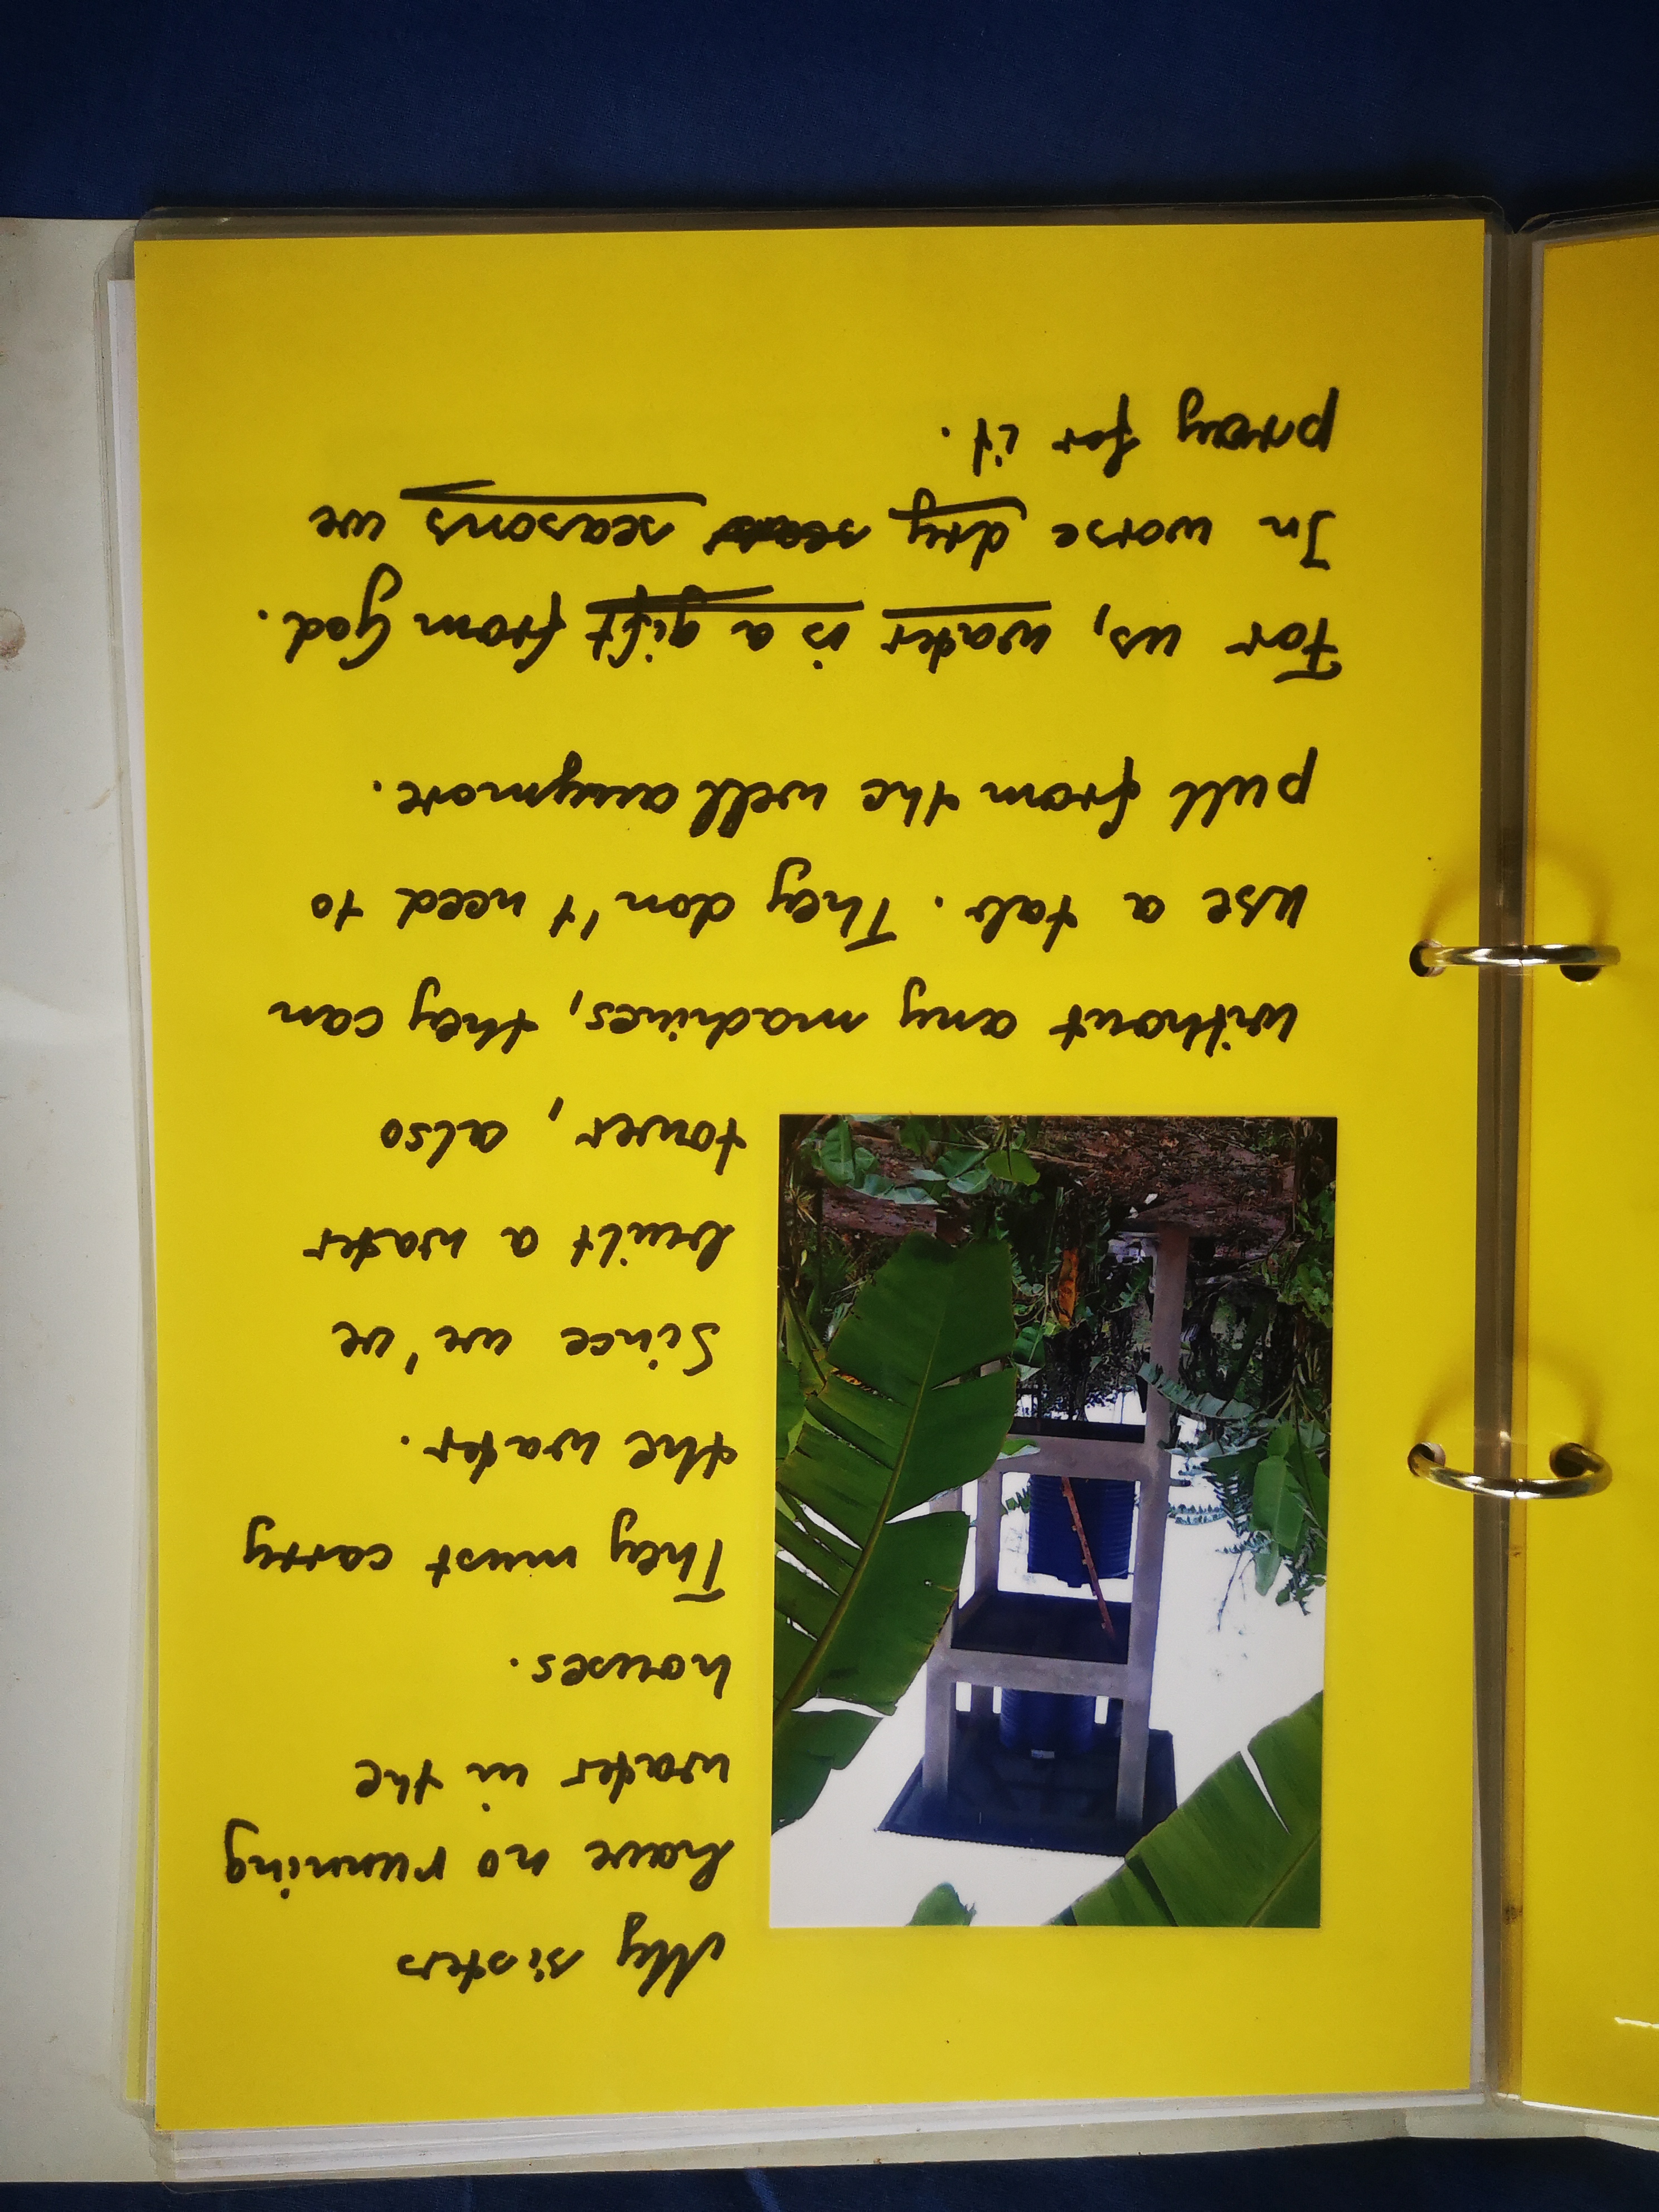 My sisters
have no running
water in the
houses.
They must carry
the water.
Since we've
built a water
tower, also
without any machines, they can
use a tab. They don't need to
pull from the well anymore.
For us, water is a gift from God.
In worse dry seasons we
pray for it.